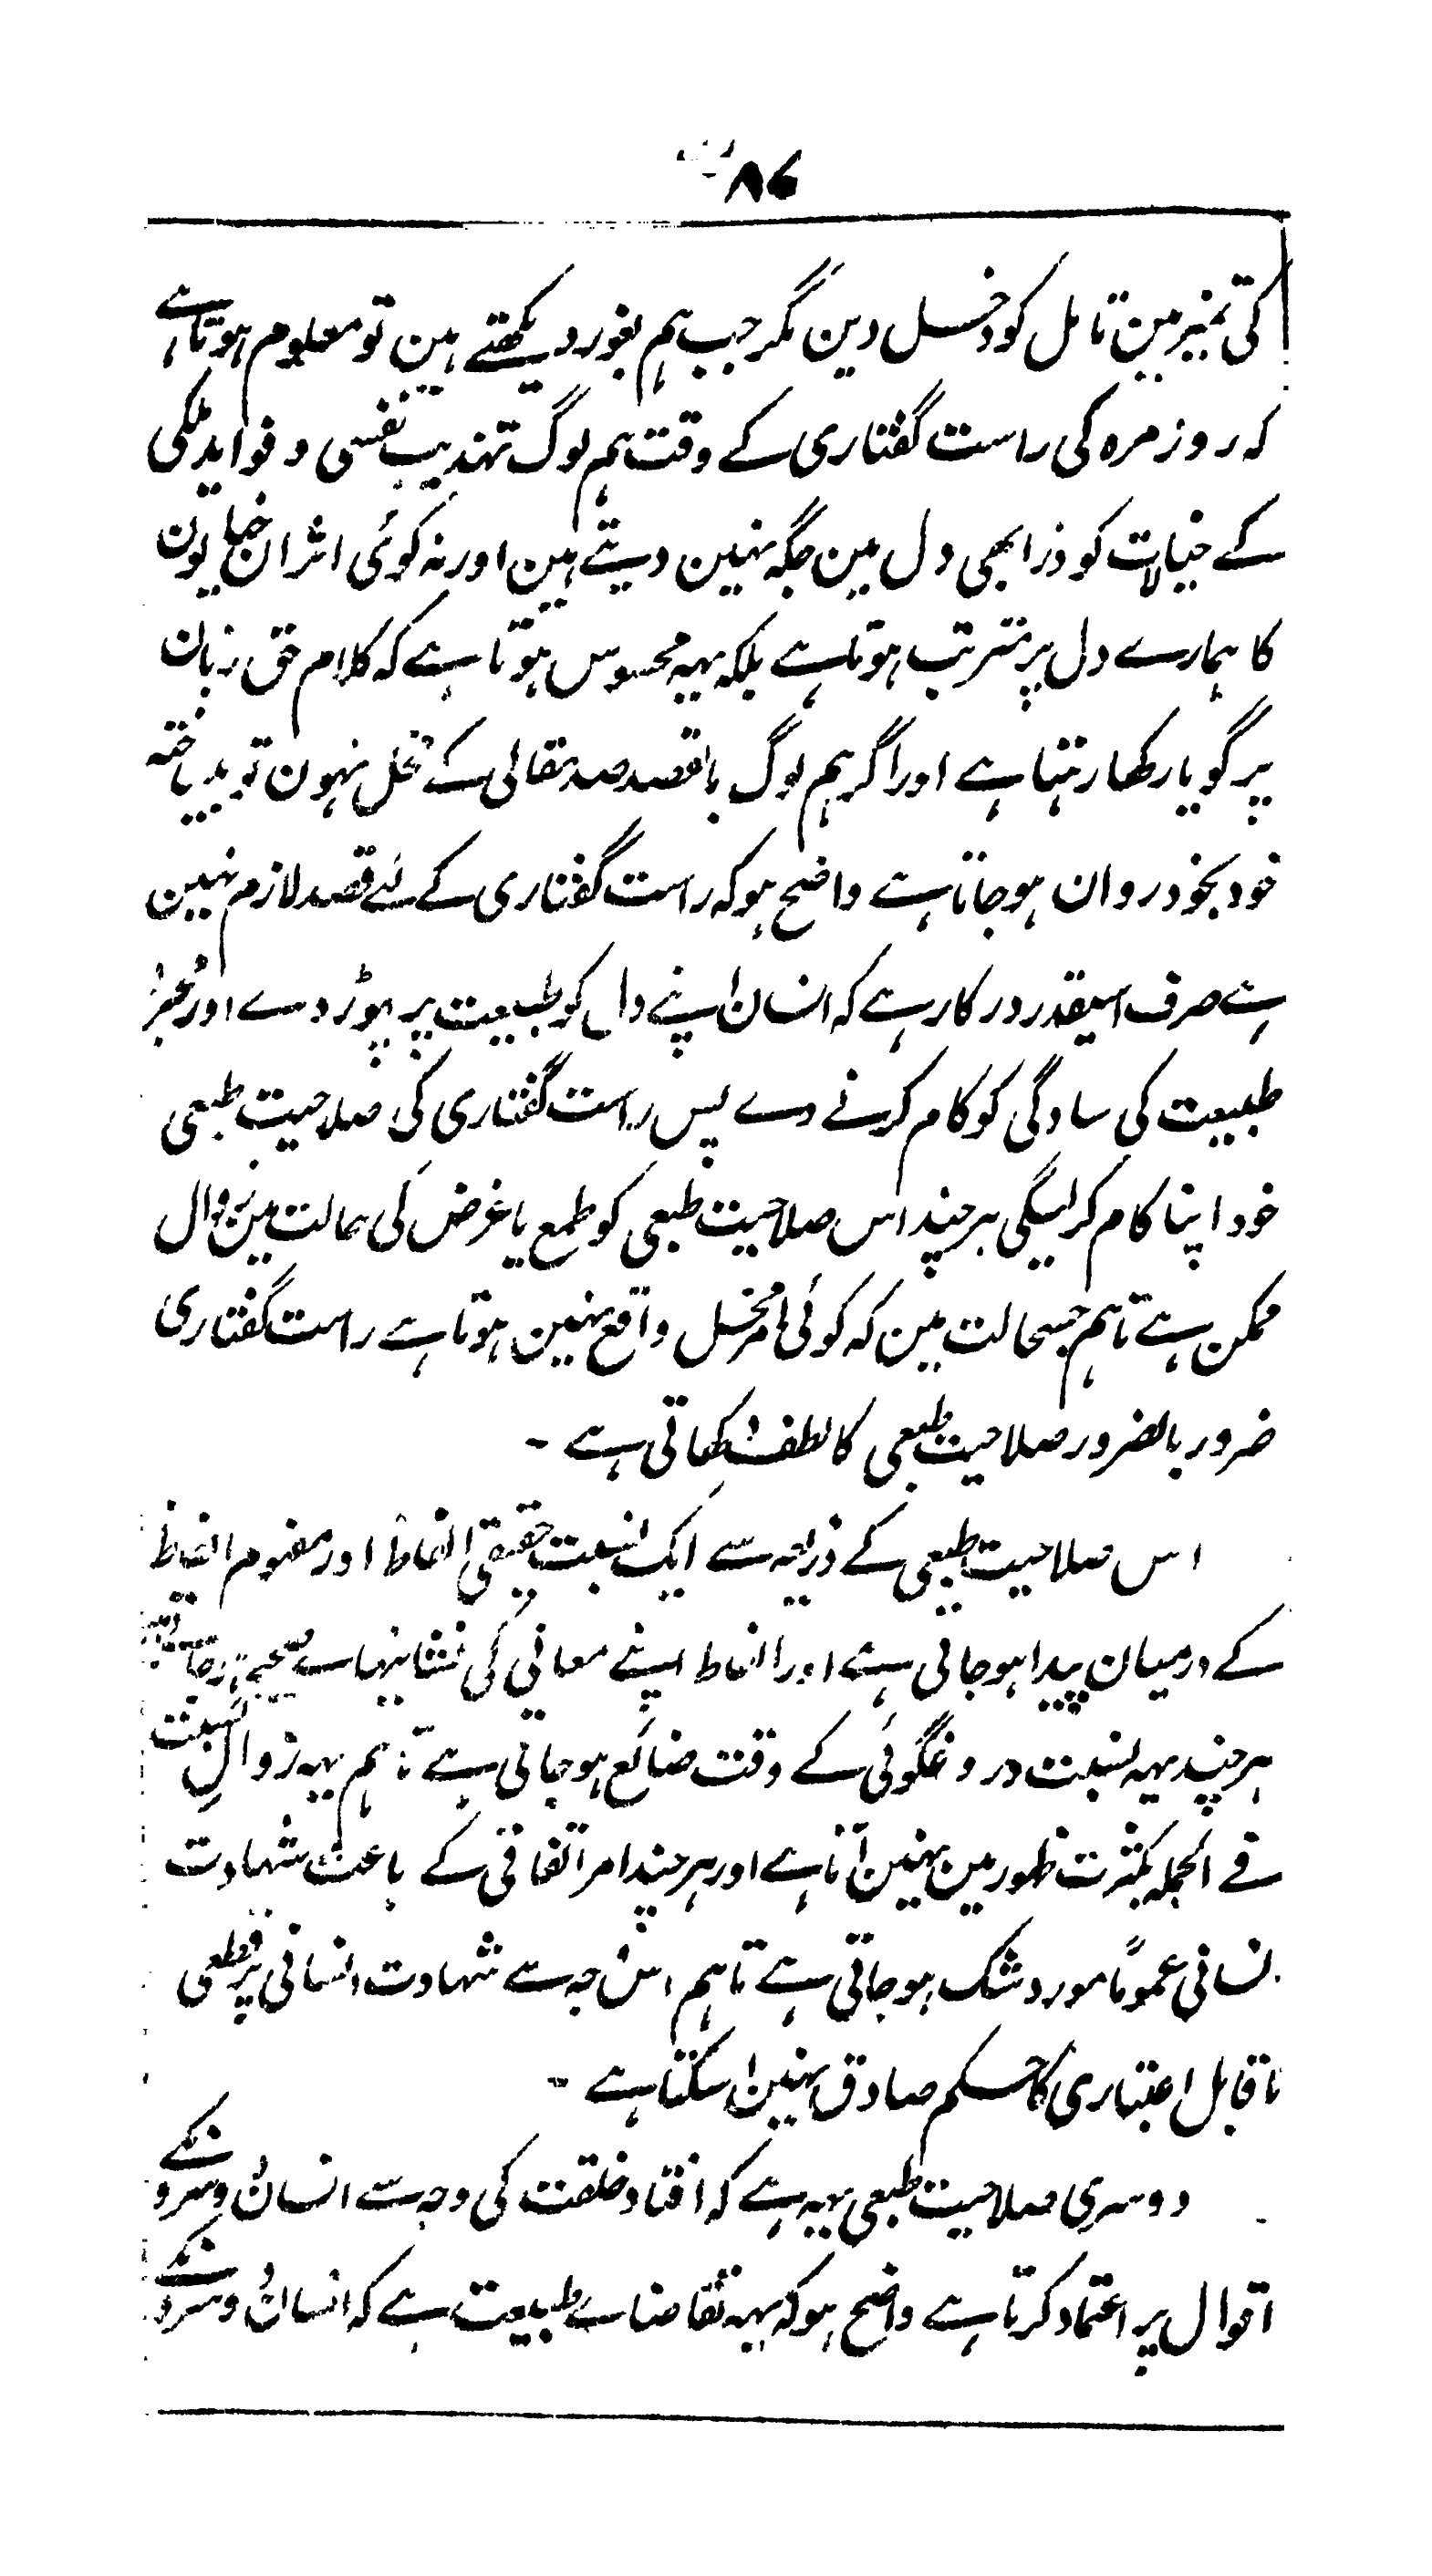 ۸۶
کی تمیز مین تامل کو دخل دین مگر جب ہم بغور دیکھتے ہین تو معلوم ہوتا ہے
کہ روزمرہ کی راست گفتاری کے وقت ہم لوگ تہذیب نفسی و فواید ملکی
کے خیالات کو ذرا بھی دل مین جگہ نہین دیتے ہین اور نہ کوئی اثر ان خیالون
کا ہمارے دل پر مترتب ہوتا ہے بلکہ یہہ محسوس ہوتا ہے کہ کلام حق زبان
پر گویا رکھا رہتا ہے اور اگر ہم لوگ بالقصد صدمقالی کے مخل نہون تو بیساختہ
خود بخود روان ہو جاتا ہے واضح ہو کہ راست گفتاری کے لئے قصد لازم نہین
ہے صرف اسیقدر درکار ہے کہ انسان اپنے دل کو طبیعت پر چہوڑ دے اور مجرد
طبیعت کی سادگی کو کام کرنے دے پس راست گفتاری کی صلاحیت طبعی
خود اپنا کام کر لیگی ہر چند اس صلاحیت طبعی کو طمع یا غرض کی حالت مین زوال
ممکن ہے تاہم جسحالت مین کہ کوئی امر مخل واقع نہین ہوتا ہے راست گفتاری
ضرور بالضرور صلاحیت طبعی کا لطف دکھاتی ہے ۔
اس صلاحیت طبعی کے ذریعہ سے ایک نسبت حقیقی الفاظ اور مفہوم الفاظ
کے درمیان پیدا ہو جاتی ہے اور الفاظ اپنے معانی کی نشانیہاے صحیح
ہر چند یہہ نسبت دروغگوئی کے وقت ضائع ہو جاتی ہے تاہم یہہ زوالِ نسبت
فے الجملہ بکثرت ظہور مین نہین آتا ہے اور ہر چند امر اتفاقی کے باعث شہادت
انسانی عموماً مورد شک ہو جاتی ہے تاہم اس وجہ سے شہادت انسانی پر قطعی
ناقابل اعتباری کا حکم صادق نہین آ سکتا ہے ۔
دوسری صلاحیت طبعی یہہ ہے کہ افتاد خلقت کی وجہ سے انسان دوسرونکے
اقوال پر اعتماد کرتا ہے واضح ہو کہ یہہ تقاضاے طبیعت ہے کہ انسان دوسرونکے